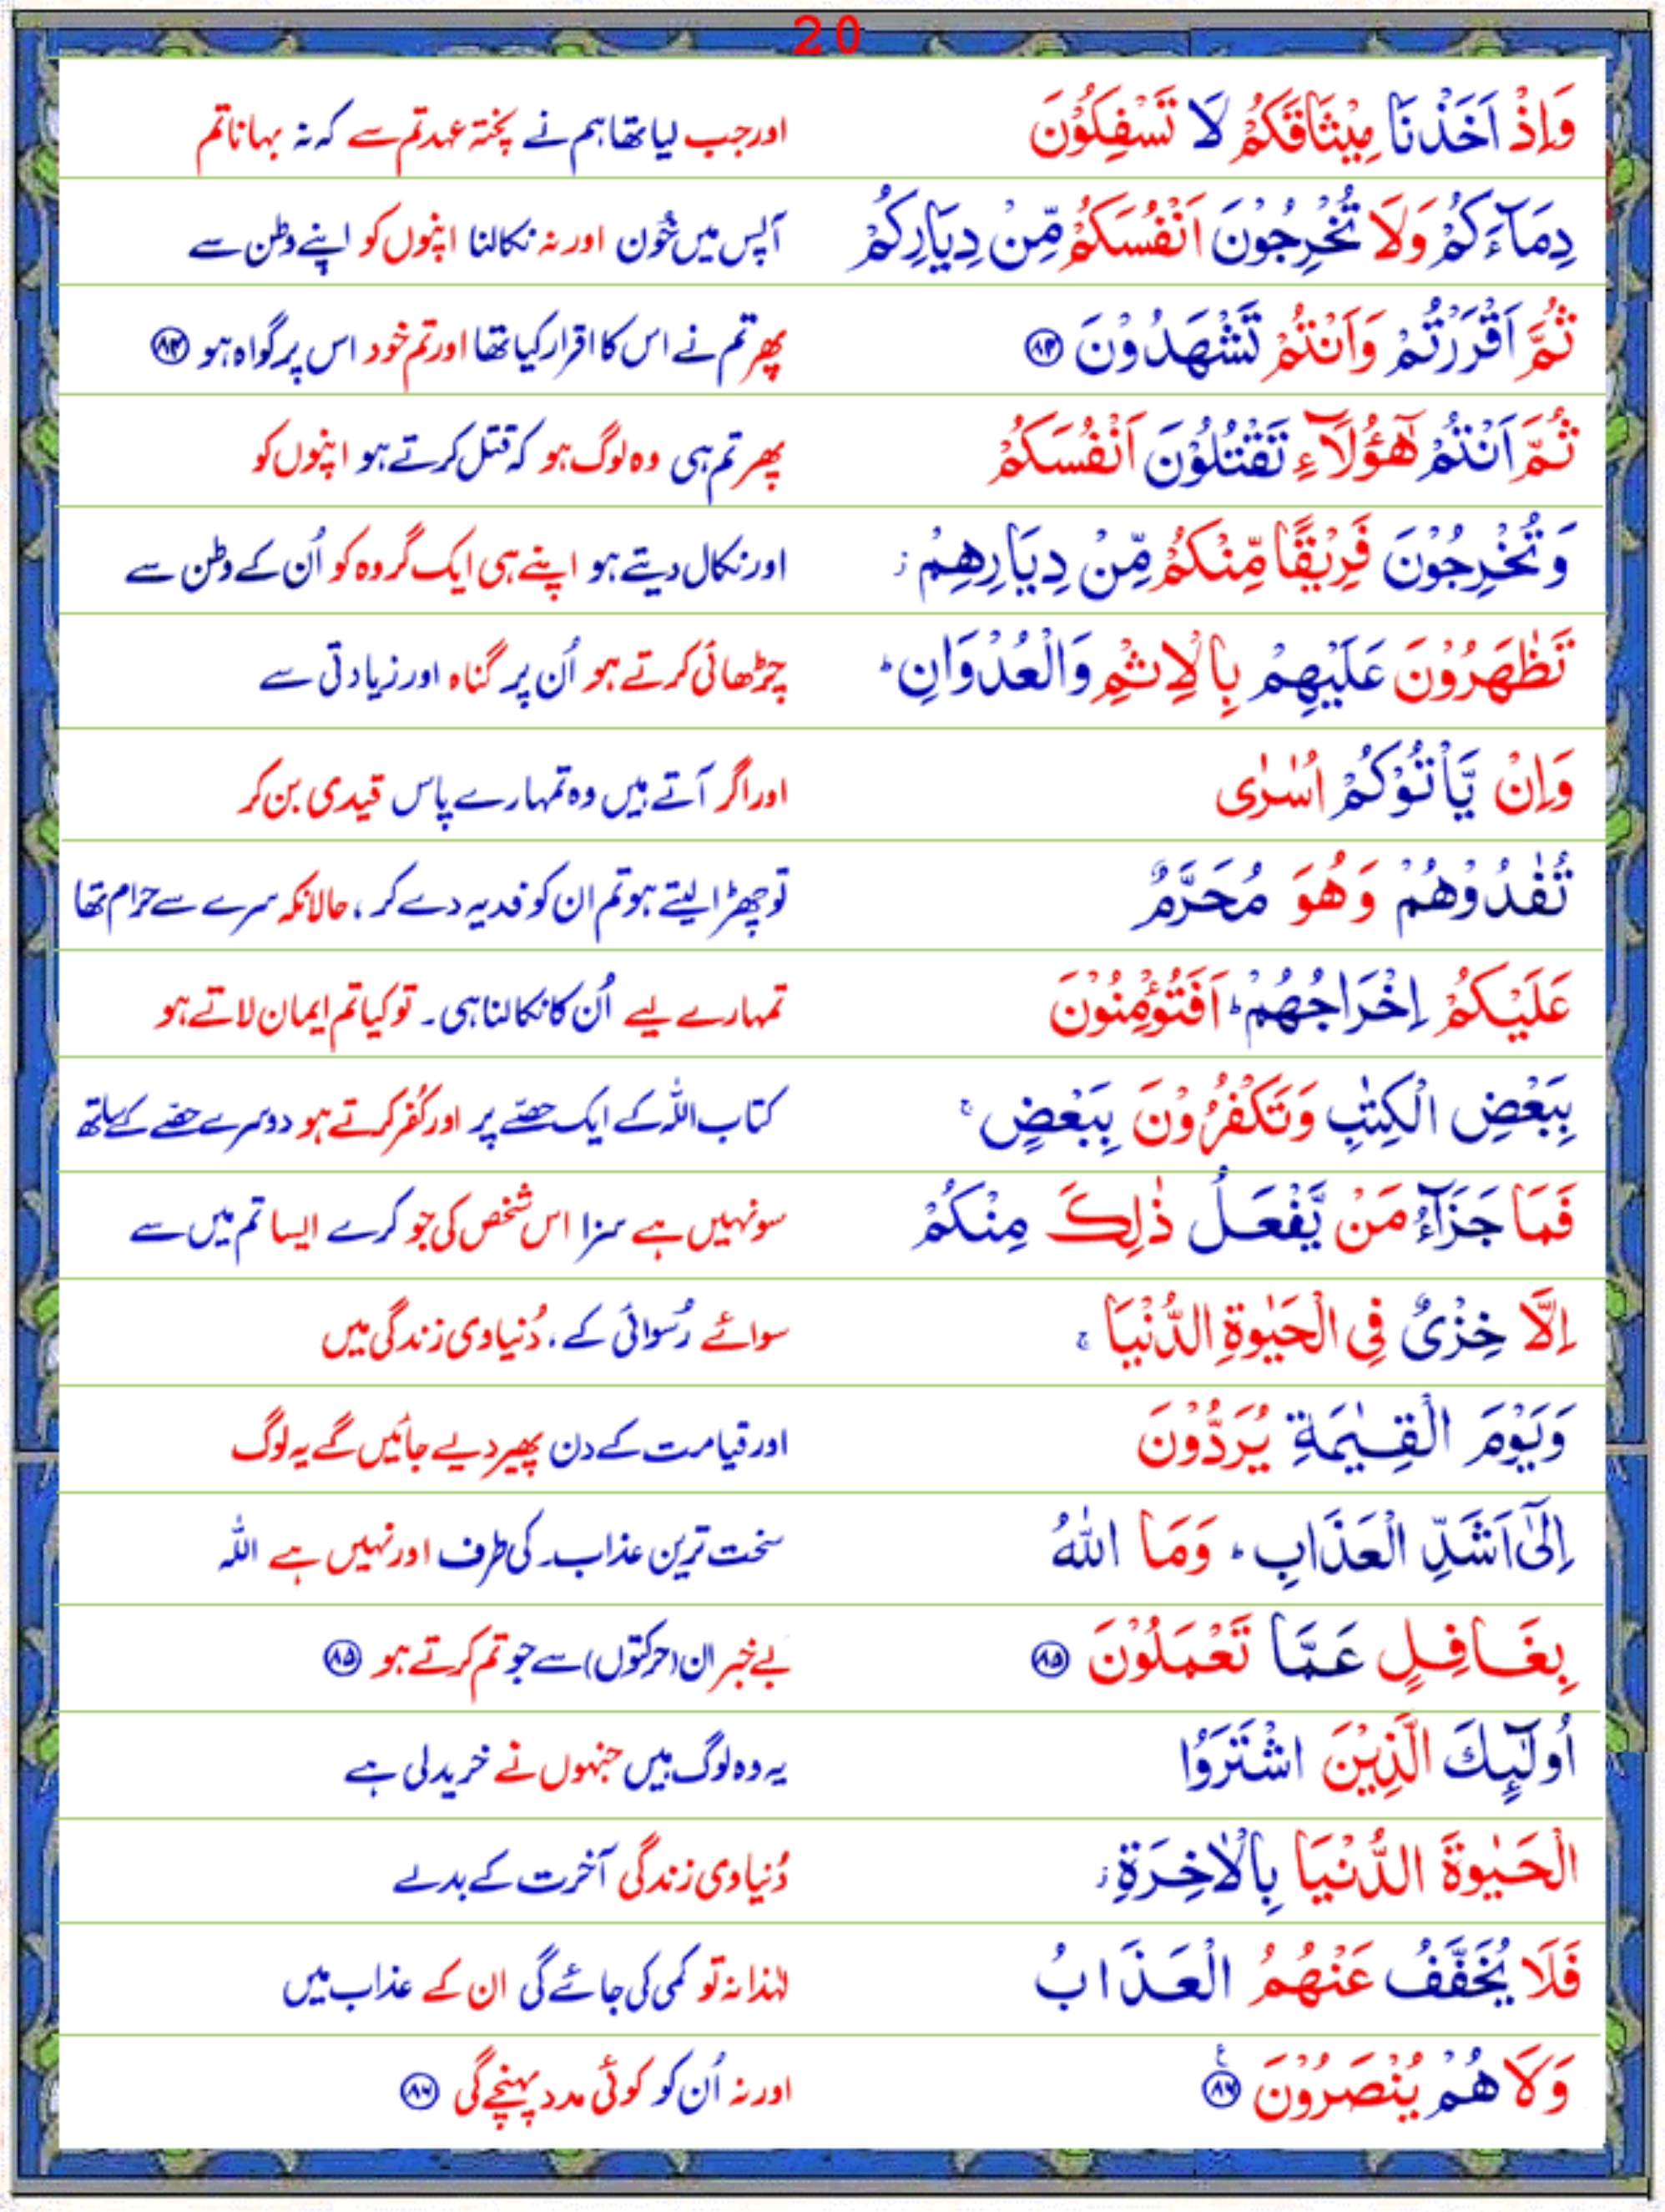 20
وَاِذْ اَخَذْنَا مِيْثَاقَكُمْ لَا تَسْفِكُوْنَ اور جب لیا تھا ہم نے پختہ عہد تم سے کہ نہ بہانا تم
دِمَآءَكُمْ وَلَا تُخْرِجُوْنَ اَنْفُسَكُمْ مِّنْ دِيَارِكُمْ آپس میں خُون اور نہ نکالنا اپنوں کو اپنے وطن سے
ثُمَّ اَقْرَرْتُمْ وَاَنْتُمْ تَشْهَدُوْنَ ۝۸۴ پھر تم نے اس کا اقرار کیا تھا اور تم خود اس پر گواہ ہو ۝۸۴
ثُمَّ اَنْتُمْ هٰٓؤُلَآءِ تَقْتُلُوْنَ اَنْفُسَكُمْ پھر تم ہی وہ لوگ ہو کہ قتل کرتے ہو اپنوں کو
وَتُخْرِجُوْنَ فَرِيْقًا مِّنْكُمْ مِّنْ دِيَارِهِمْ ز اور نکال دیتے ہو اپنے ہی ایک گروہ کو اُن کے وطن سے
تَظٰهَرُوْنَ عَلَيْهِمْ بِالْاِثْمِ وَالْعُدْوَانِ ؕ چڑھائی کرتے ہو اُن پر گناہ اور زیادتی سے
وَاِنْ يَّاْتُوْكُمْ اُسٰرٰى اور اگر آتے ہیں وہ تمہارے پاس قیدی بن کر
تُفٰدُوْهُمْ وَهُوَ مُحَرَّمٌ تو چھڑا لیتے ہو تم ان کو فدیہ دے کر، حالانکہ سرے سے حرام تھا
عَلَيْكُمْ اِخْرَاجُهُمْ ؕ اَفَتُؤْمِنُوْنَ تمہارے لیے اُن کا نکالنا ہی۔ تو کیا تم ایمان لاتے ہو
بِبَعْضِ الْكِتٰبِ وَتَكْفُرُوْنَ بِبَعْضٍ ۚ کتاب اللہ کے ایک حصّے پر اور کُفر کرتے ہو دوسرے حصّے کے ساتھ
فَمَا جَزَآءُ مَنْ يَّفْعَلُ ذٰلِكَ مِنْكُمْ سو نہیں ہے سزا اس شخص کی جو کرے ایسا تم میں سے
اِلَّا خِزْىٌ فِى الْحَيٰوةِ الدُّنْيَا ۚ سوائے رُسوائی کے، دُنیاوی زندگی میں
وَيَوْمَ الْقِيٰمَةِ يُرَدُّوْنَ اور قیامت کے دن پھیر دیے جائیں گے یہ لوگ
اِلٰٓى اَشَدِّ الْعَذَابِ ؕ وَمَا اللّٰهُ سخت ترین عذاب کی طرف اور نہیں ہے اللّٰہ
بِغَافِلٍ عَمَّا تَعْمَلُوْنَ ۝۸۵ بے خبر ان (حرکتوں) سے جو تم کرتے ہو ۝۸۵
اُولٰٓئِكَ الَّذِيْنَ اشْتَرَوُا یہ وہ لوگ ہیں جنہوں نے خرید لی ہے
الْحَيٰوةَ الدُّنْيَا بِالْاٰخِرَةِ ز دُنیاوی زندگی آخرت کے بدلے
فَلَا يُخَفَّفُ عَنْهُمُ الْعَذَابُ لہٰذا نہ تو کمی کی جائے گی ان کے عذاب میں
وَلَا هُمْ يُنْصَرُوْنَ ۝۸۶ ع اور نہ اُن کو کوئی مدد پہنچے گی ۝۸۶